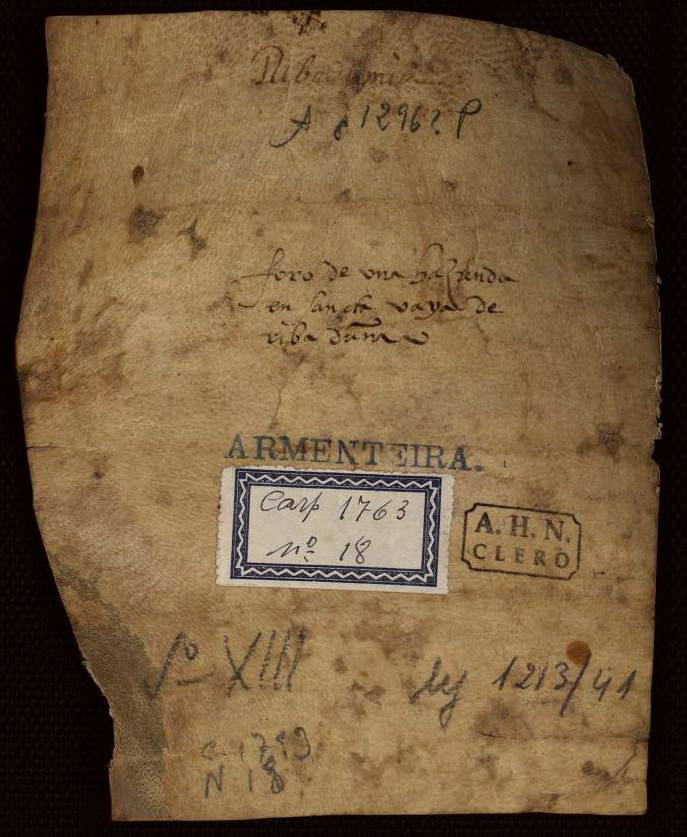 Ribadumia
A 1296 P
foro de una hazienda
en sancta vaya de
riba dumia
ARMENTEIRA.
Carp 1763
nº 18
A. H. N.
CLERO
Sº XIII
leg 1213/41
N 18